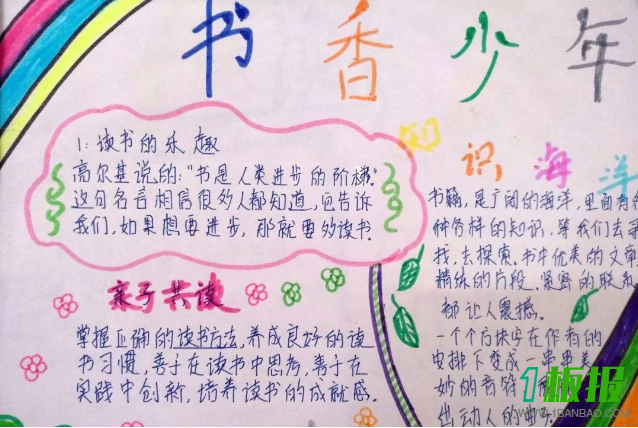 书香少年
1: 读书的乐趣
高尔基说的:“书是人类进步的阶梯”
这句名言相信很多人都知道,它告诉
我们,如果想要进步,那就要多读书.
亲子共读
掌握正确的读书方法,养成良好的读
书习惯,善于在读书中思考,善于在
实践中创新,培养读书的成就感.
知识海洋
书籍,是广阔的海洋,里面有各
种各样的知识,等我们去寻
找,去探索.书中优美的文章
精练的片段,紧密的联系
都让人震撼.
一个个方块字在作者的
安排下变成一串串美
妙的音符
出动人的
1板报
WWW.1BANBAO.COM